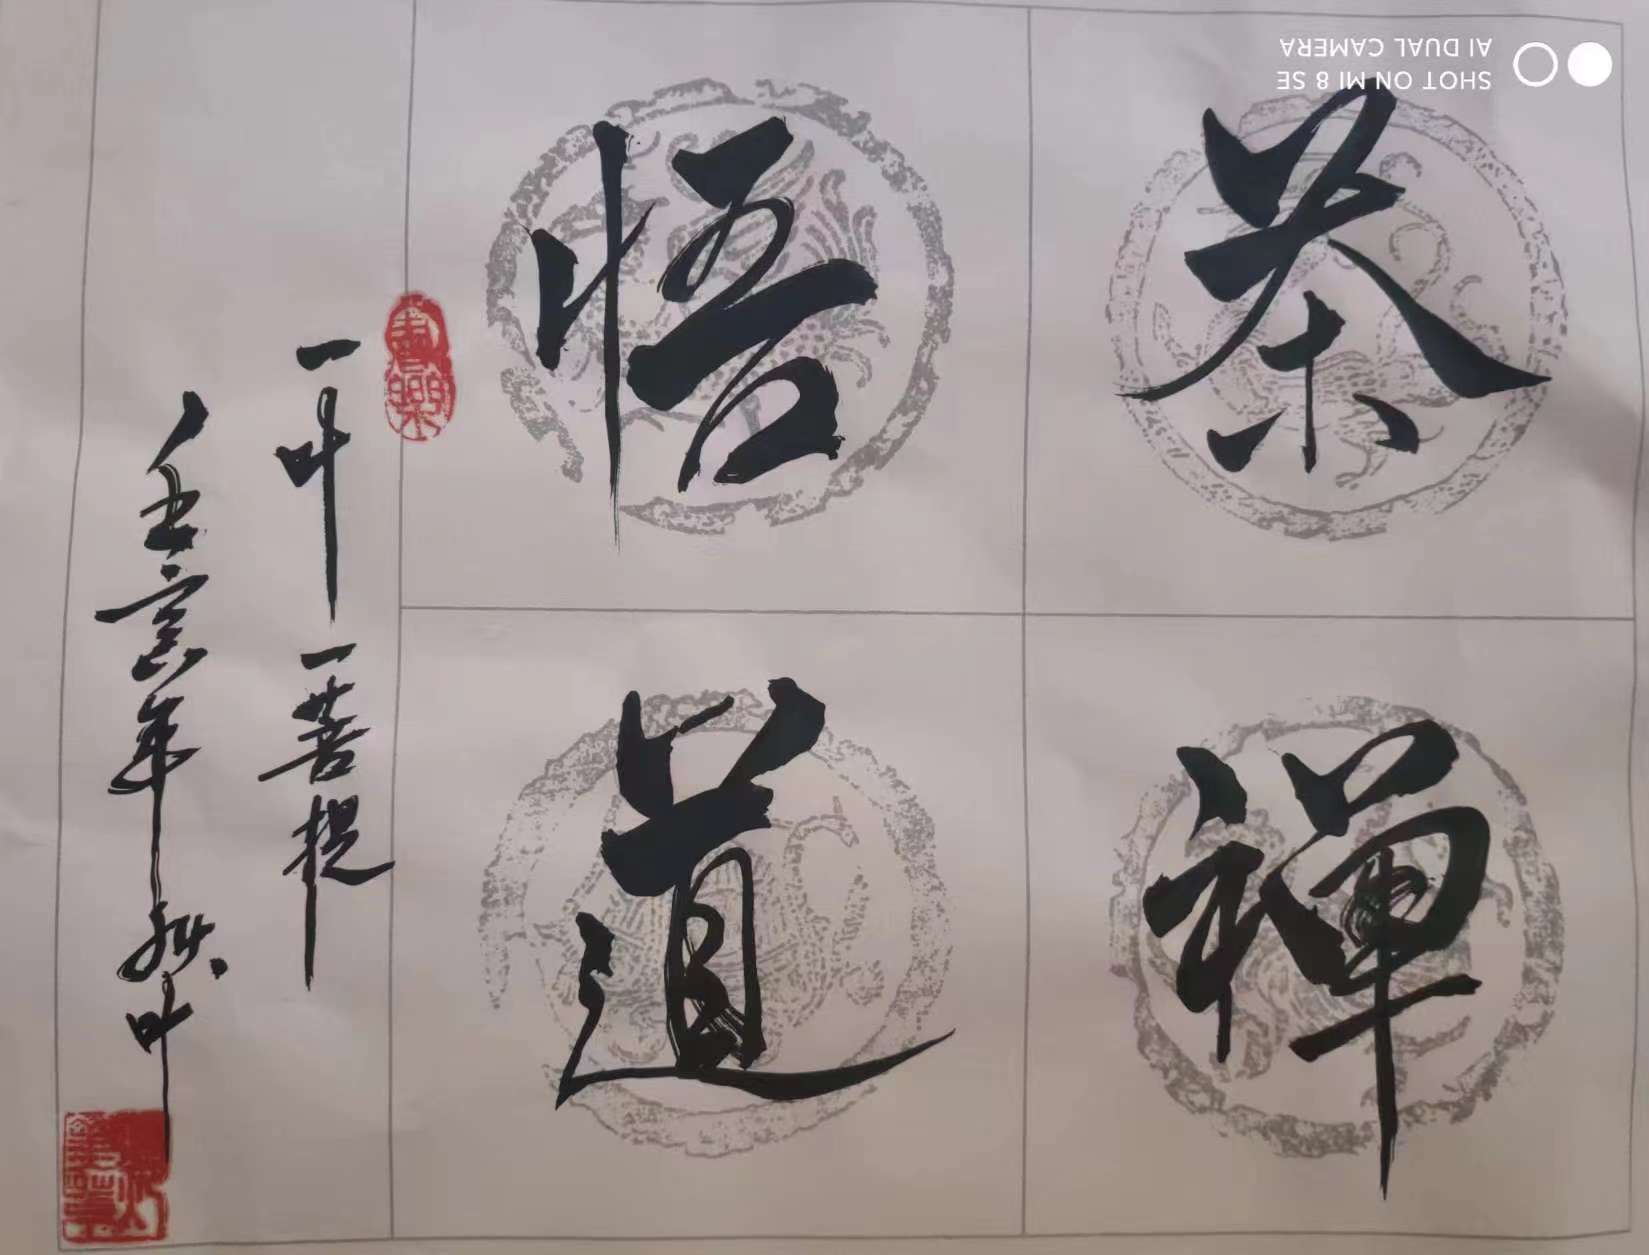 茶禅
悟道
一叶一菩提
壬寅年秋叶
SHOT ON MI 8 SE
AI DUAL CAMERA